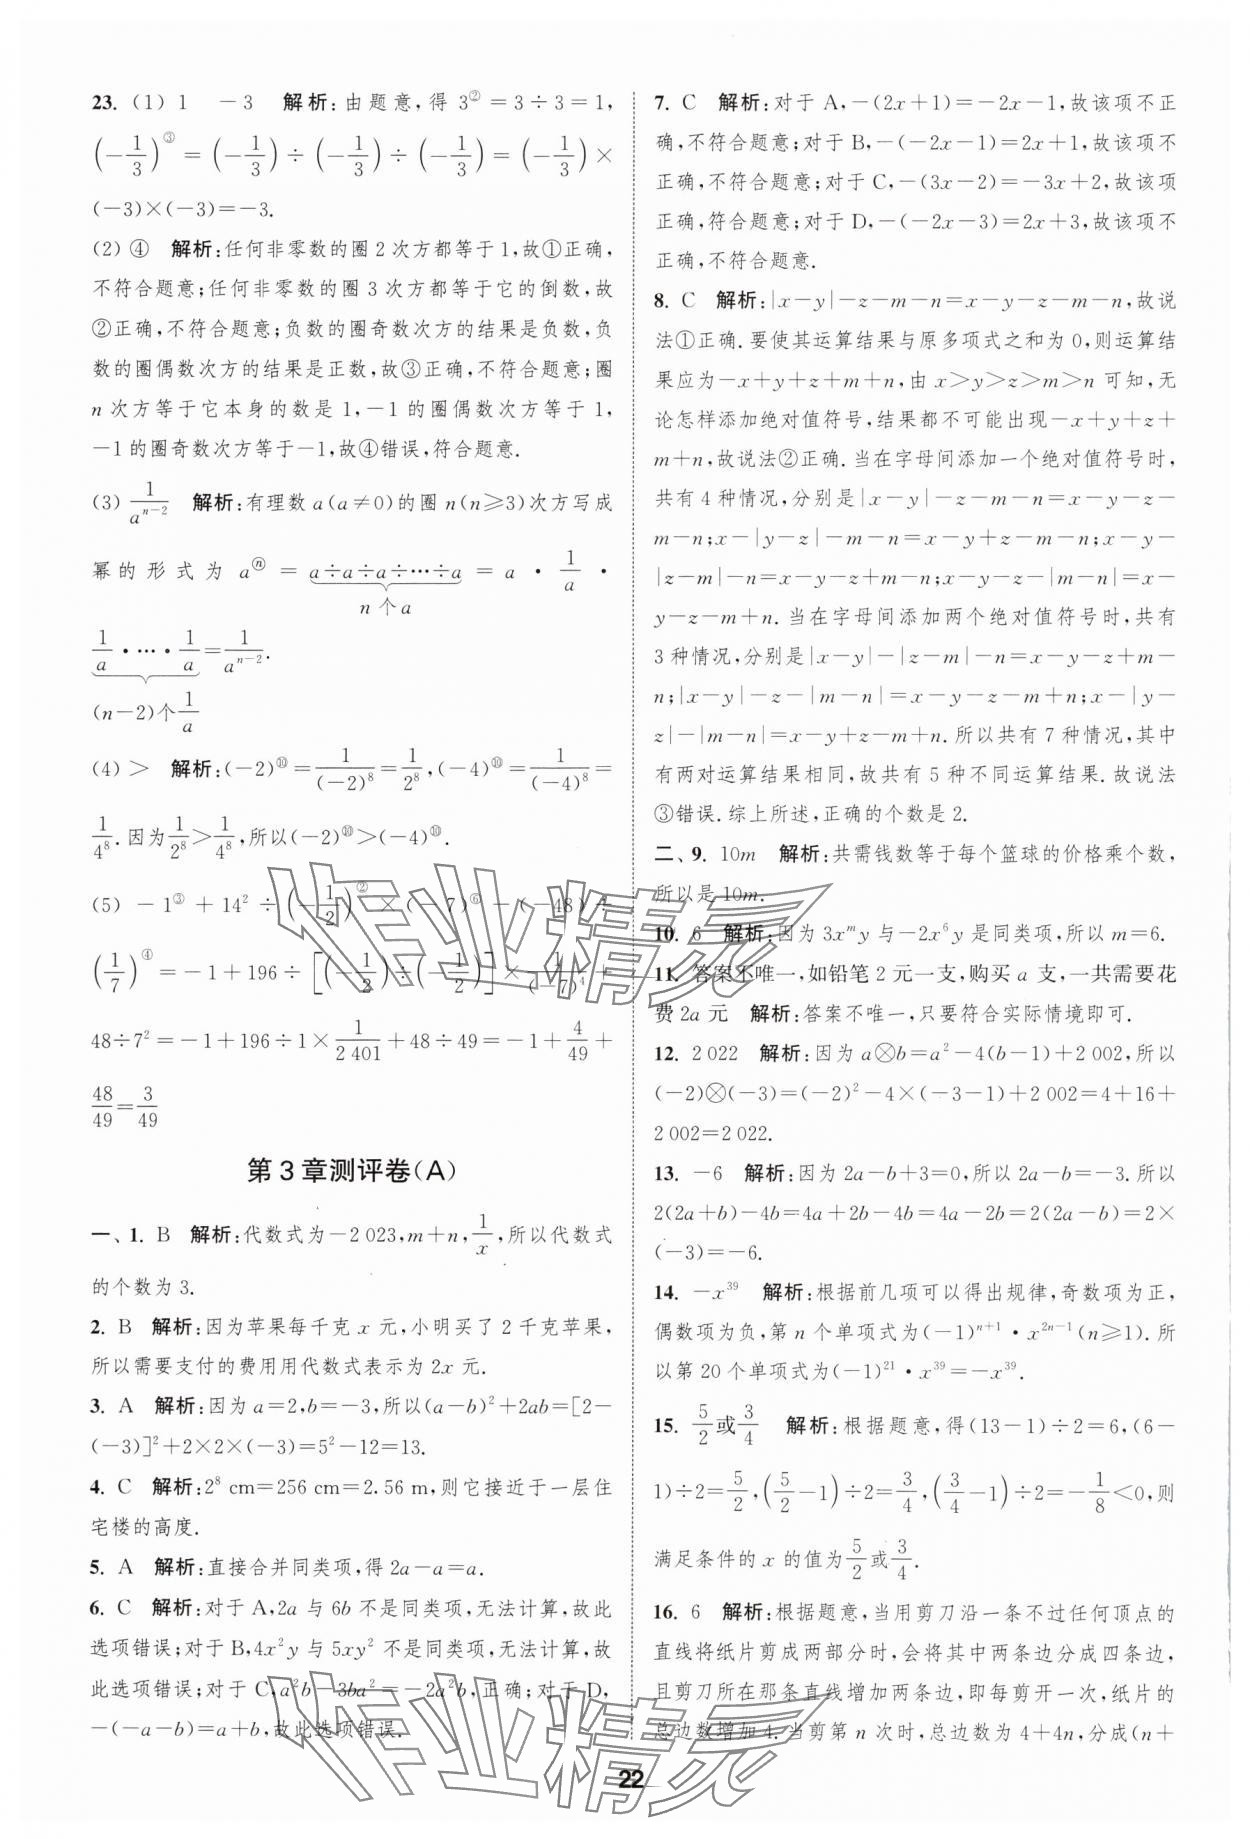 23. (1) 1　－3　解析:由题意,得 3^②＝3÷3＝1,
(－1/3)^③＝(－1/3)÷(－1/3)÷(－1/3)＝(－1/3)×
(－3)×(－3)＝－3.
(2) ④　解析:任何非零数的圈 2 次方都等于 1,故①正确,
不符合题意;任何非零数的圈 3 次方都等于它的倒数,故
②正确,不符合题意;负数的圈奇数次方的结果是负数,负
数的圈偶数次方的结果是正数,故③正确,不符合题意;圈
n 次方等于它本身的数是 1,－1 的圈偶数次方等于 1,
－1 的圈奇数次方等于－1,故④错误,符合题意.
(3) 1/a^{n－2}　解析:有理数 a(a≠0)的圈 n(n≥3)次方写成
幂的形式为 a^ⓝ＝a÷a÷a÷…÷a＝a·1/a·
n 个 a
1/a·…·1/a＝1/a^{n－2}.
(n－2)个1/a
(4) ＞　解析:(－2)^⑩＝1/(－2)^8＝1/2^8,(－4)^⑩＝1/(－4)^8＝
1/4^8.因为1/2^8＞1/4^8,所以(－2)^⑩＞(－4)^⑩.
(5) －1^③＋14^2÷(－1/2)^②×(－7)^⑥－(－48)÷
(1/7)^④＝－1＋196÷[(－1/2)÷(－1/2)]×1/(－7)^4＋
48÷7^2＝－1＋196÷1×1/2 401＋48÷49＝－1＋4/49＋
48/49＝3/49
第 3 章测评卷(A)
一、1. B　解析:代数式为－2 023,m＋n,1/x,所以代数式
的个数为 3.
2. B　解析:因为苹果每千克 x 元,小明买了 2 千克苹果,
所以需要支付的费用用代数式表示为 2x 元.
3. A　解析:因为 a＝2,b＝－3,所以(a－b)^2＋2ab＝[2－
(－3)]^2＋2×2×(－3)＝5^2－12＝13.
4. C　解析:2^8 cm＝256 cm＝2.56 m,则它接近于一层住
宅楼的高度.
5. A　解析:直接合并同类项,得 2a－a＝a.
6. C　解析:对于 A,2a 与 6b 不是同类项,无法计算,故此
选项错误;对于 B,4x^2y 与 5xy^2 不是同类项,无法计算,故
此选项错误;对于 C,a^2b－3ba^2＝－2a^2b,正确;对于 D,
－(－a－b)＝a＋b,故此选项错误.
7. C　解析:对于 A,－(2x＋1)＝－2x－1,故该项不正
确,不符合题意;对于 B,－(－2x－1)＝2x＋1,故该项不
正确,不符合题意;对于 C,－(3x－2)＝－3x＋2,故该项
正确,符合题意;对于 D,－(－2x－3)＝2x＋3,故该项不
正确,不符合题意.
8. C　解析:|x－y|－z－m－n＝x－y－z－m－n,故说
法①正确.要使其运算结果与原多项式之和为 0,则运算结
果应为－x＋y＋z＋m＋n,由 x＞y＞z＞m＞n 可知,无
论怎样添加绝对值符号,结果都不可能出现－x＋y＋z＋
m＋n,故说法②正确.当在字母间添加一个绝对值符号时,
共有 4 种情况,分别是|x－y|－z－m－n＝x－y－z－
m－n;x－|y－z|－m－n＝x－y＋z－m－n;x－y－
|z－m|－n＝x－y－z＋m－n;x－y－z－|m－n|＝x－
y－z－m＋n.当在字母间添加两个绝对值符号时,共有
3 种情况,分别是|x－y|－|z－m|－n＝x－y－z＋m－
n;|x－y|－z－|m－n|＝x－y－z－m＋n;x－|y－
z|－|m－n|＝x－y＋z－m＋n.所以共有 7 种情况,其中
有两对运算结果相同,故共有 5 种不同运算结果.故说法
③错误.综上所述,正确的个数是 2.
二、9. 10m　解析:共需钱数等于每个篮球的价格乘个数,
所以是 10m.
10. 6　解析:因为 3x^my 与－2x^6y 是同类项,所以 m＝6.
11. 答案不唯一,如铅笔 2 元一支,购买 a 支,一共需要花
费 2a 元　解析:答案不唯一,只要符合实际情境即可.
12. 2 022　解析:因为 a⊗b＝a^2－4(b－1)＋2 002,所以
(－2)⊗(－3)＝(－2)^2－4×(－3－1)＋2 002＝4＋16＋
2 002＝2 022.
13. －6　解析:因为 2a－b＋3＝0,所以 2a－b＝－3.所以
2(2a＋b)－4b＝4a＋2b－4b＝4a－2b＝2(2a－b)＝2×
(－3)＝－6.
14. －x^39　解析:根据前几项可以得出规律,奇数项为正,
偶数项为负,第 n 个单项式为(－1)^{n＋1}·x^{2n－1}(n≥1).所
以第 20 个单项式为(－1)^21·x^39＝－x^39.
15. 5/2或3/4　解析:根据题意,得(13－1)÷2＝6,(6－
1)÷2＝5/2,(5/2－1)÷2＝3/4,(3/4－1)÷2＝－1/8＜0,则
满足条件的 x 的值为5/2或3/4.
16. 6　解析:根据题意,当用剪刀沿一条不过任何顶点的
直线将纸片剪成两部分时,会将其中两条边分成四条边,
且剪刀所在那条直线增加两条边,即每剪开一次,纸片的
总边数增加 4.当剪第 n 次时,总边数为 4＋4n,分成(n＋
22
作业精灵
作业精灵